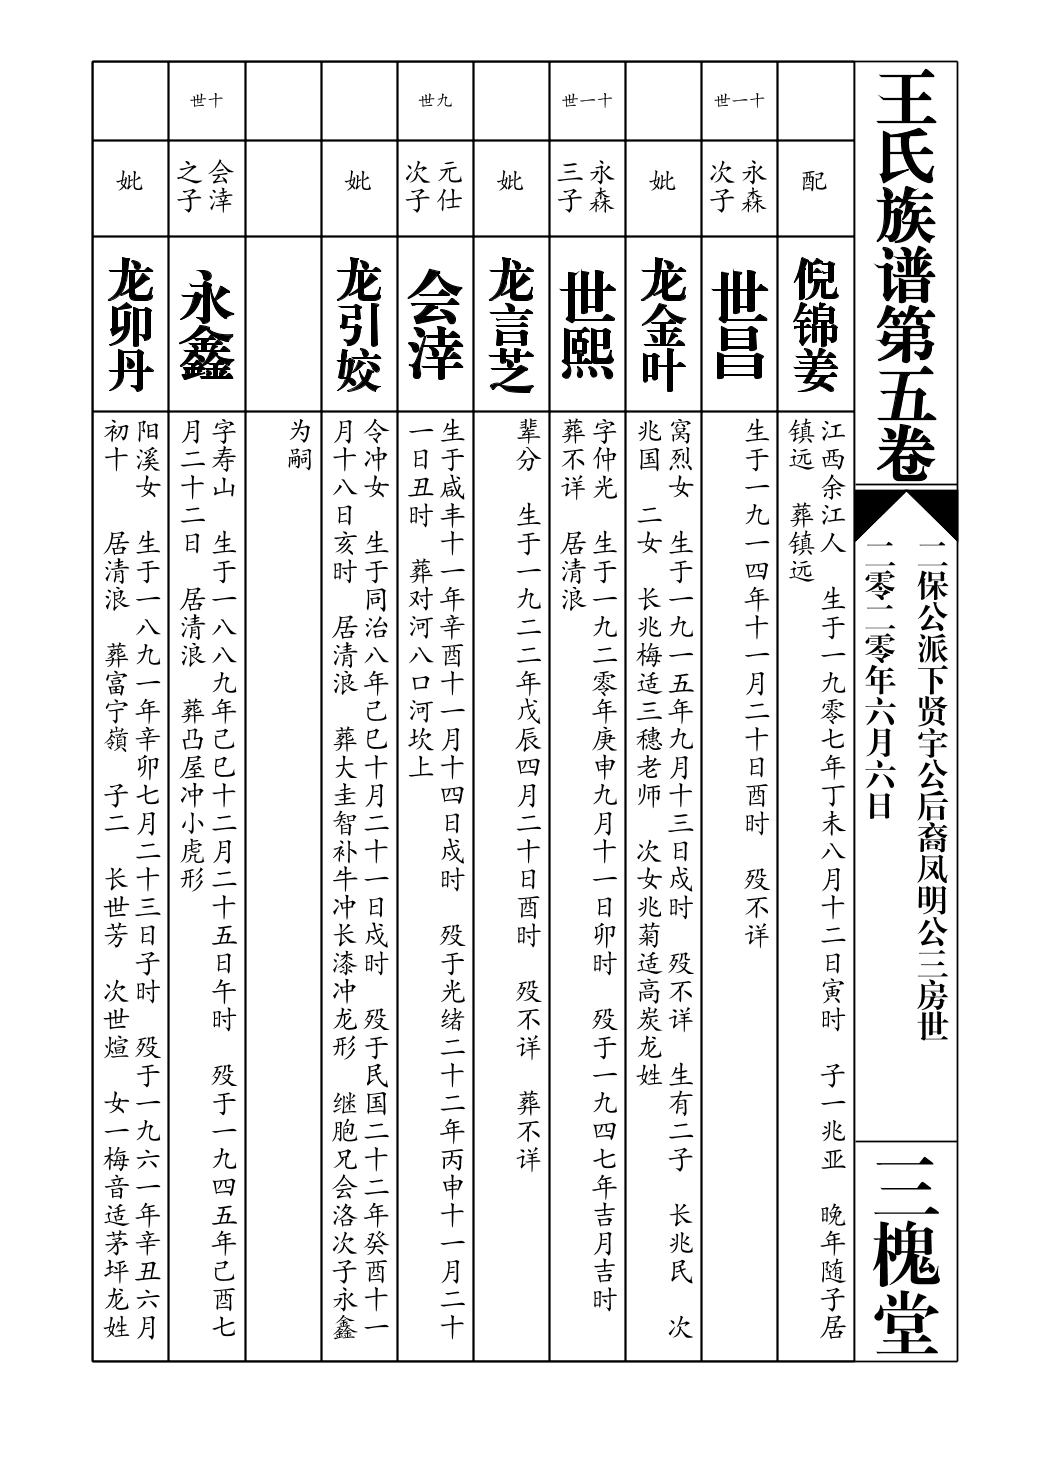 王氏族谱第五卷
二保公派下贤宇公后裔凤明公三房世
二零二零年六月六日
三槐堂
配
倪锦姜
江西余江人　生于一九零七年丁未八月十二日寅时　子一兆亚　晚年随子居
镇远　葬镇远
十一世
永森
次子
世昌
生于一九一四年十一月二十日酉时　殁不详
妣
龙金叶
窝烈女　生于一九一五年九月十三日戍时　殁不详　生有二子　长兆民　次
兆国　二女　长兆梅适三穗老师　次女兆菊适高炭龙姓
十一世
永森
三子
世熙
字仲光　生于一九二零年庚申九月十一日卯时　殁于一九四七年吉月吉时
葬不详　居清浪
妣
龙言芝
辈分　生于一九二二年戊辰四月二十日酉时　殁不详　葬不详
九世
元仕
次子
会涬
生于咸丰十一年辛酉十一月十四日戍时　殁于光绪二十二年丙申十一月二十
一日丑时　葬对河八口河坎上
妣
龙引姣
令冲女　生于同治八年己巳十月二十一日戍时　殁于民国二十二年癸酉十一
月十八日亥时　居清浪　葬大圭智补牛冲长漆冲龙形　继胞兄会洛次子永鑫
为嗣
十世
会涬
之子
永鑫
字寿山　生于一八八九年己巳十二月二十五日午时　殁于一九四五年己酉七
月二十二日　居清浪　葬凸屋冲小虎形
妣
龙卯丹
阳溪女　生于一八九一年辛卯七月二十三日子时　殁于一九六一年辛丑六月
初十　居清浪　葬富宁嶺　子二　长世芳　次世煊　女一梅音适茅坪龙姓